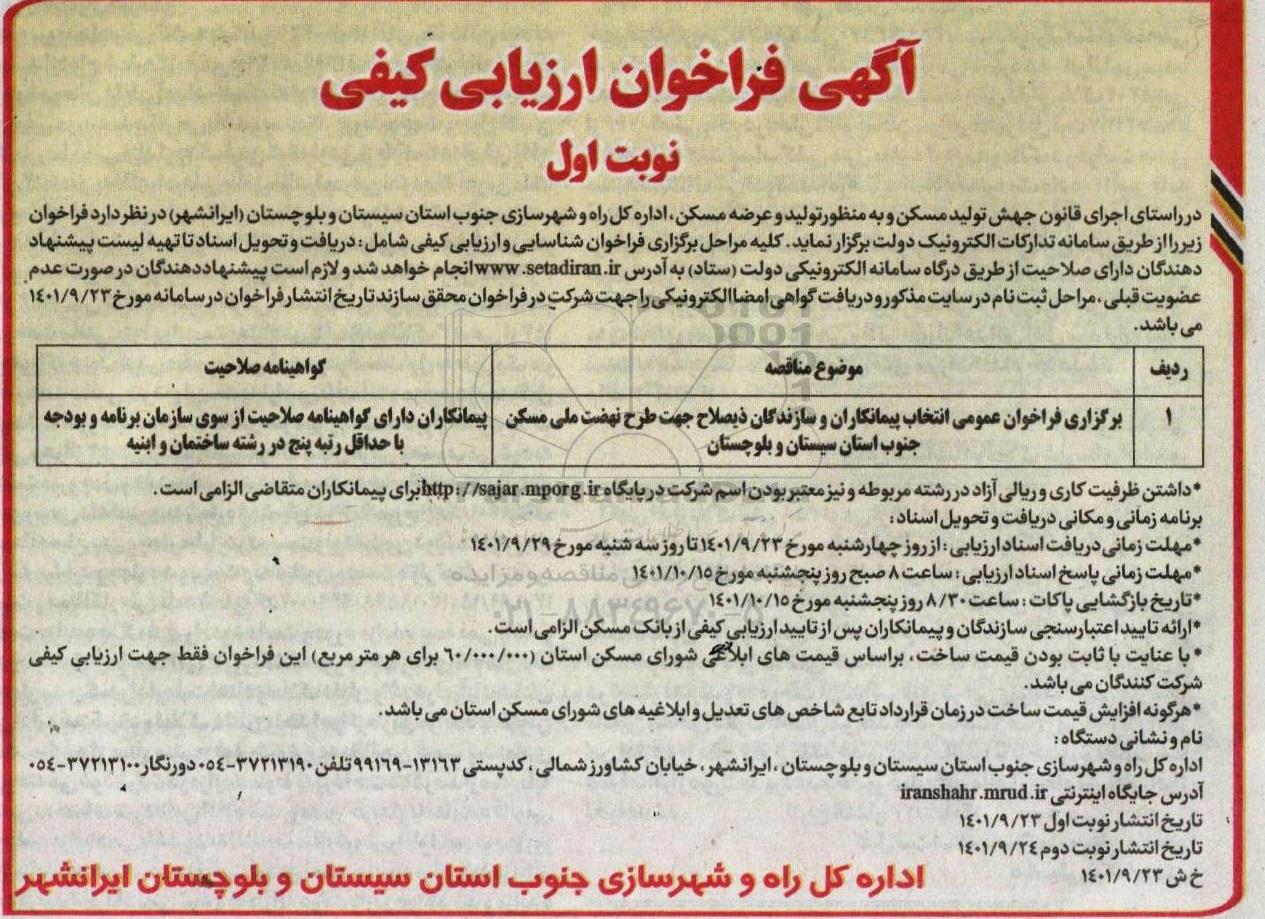 آگهی فراخوان ارزیابی کیفی
نوبت اول
در راستای اجرای قانون جهش تولید مسکن و به منظور تولید و عرضه مسکن، اداره کل راه و شهرسازی جنوب استان سیستان و بلوچستان (ایرانشهر) در نظر دارد فراخوان
زیر را از طریق سامانه تدارکات الکترونیک دولت برگزار نماید. کلیه مراحل برگزاری فراخوان شناسایی و ارزیابی کیفی شامل: دریافت و تحویل اسناد تا تهیه لیست پیشنهاد
دهندگان دارای صلاحیت از طریق درگاه سامانه الکترونیکی دولت (ستاد) به آدرس www.setadiran.ir انجام خواهد شد و لازم است پیشنهاددهندگان در صورت عدم
عضویت قبلی، مراحل ثبت نام در سایت مذکور و دریافت گواهی امضا الکترونیکی را جهت شرکت در فراخوان محقق سازند تاریخ انتشار فراخوان در سامانه مورخ ۱۴۰۱/۹/۲۳
می باشد.
ردیف موضوع مناقصه گواهینامه صلاحیت
۱ برگزاری فراخوان عمومی انتخاب پیمانکاران و سازندگان ذیصلاح جهت طرح نهضت ملی مسکن پیمانکاران دارای گواهینامه صلاحیت از سوی سازمان برنامه و بودجه
جنوب استان سیستان و بلوچستان با حداقل رتبه پنج در رشته ساختمان و ابنیه
*داشتن ظرفیت کاری و ریالی آزاد در رشته مربوطه و نیز معتبر بودن اسم شرکت در پایگاه http://sajar.mporg.ir برای پیمانکاران متقاضی الزامی است.
برنامه زمانی و مکانی دریافت و تحویل اسناد:
*مهلت زمانی دریافت اسناد ارزیابی: از روز چهارشنبه مورخ ۱۴۰۱/۹/۲۳ تا روز سه شنبه مورخ ۱۴۰۱/۹/۲۹
*مهلت زمانی پاسخ اسناد ارزیابی: ساعت ۸ صبح روز پنجشنبه مورخ ۱۴۰۱/۱۰/۱۵
*تاریخ بازگشایی پاکات: ساعت ۸/۳۰ روز پنجشنبه مورخ ۱۴۰۱/۱۰/۱۵
*ارائه تایید اعتبارسنجی سازندگان و پیمانکاران پس از تایید ارزیابی کیفی از بانک مسکن الزامی است.
*با عنایت با ثابت بودن قیمت ساخت، براساس قیمت های ابلاغی شورای مسکن استان (۶۰/۰۰۰/۰۰۰ برای هر متر مربع) این فراخوان فقط جهت ارزیابی کیفی
شرکت کنندگان می باشد.
*هرگونه افزایش قیمت ساخت در زمان قرارداد تابع شاخص های تعدیل و ابلاغیه های شورای مسکن استان می باشد.
نام و نشانی دستگاه:
اداره کل راه و شهرسازی جنوب استان سیستان و بلوچستان، ایرانشهر، خیابان کشاورز شمالی، کدپستی ۱۳۱۶۳-۹۹۱۶۹ تلفن ۳۷۲۱۳۱۹۰-۰۵۴ دورنگار ۳۷۲۱۳۱۰۰-۰۵۴
آدرس جایگاه اینترنتی iranshahr.mrud.ir
تاریخ انتشار نوبت اول ۱۴۰۱/۹/۲۳
تاریخ انتشار نوبت دوم ۱۴۰۱/۹/۲۴
خ ش ۱۴۰۱/۹/۲۳
اداره کل راه و شهرسازی جنوب استان سیستان و بلوچستان ایرانشهر